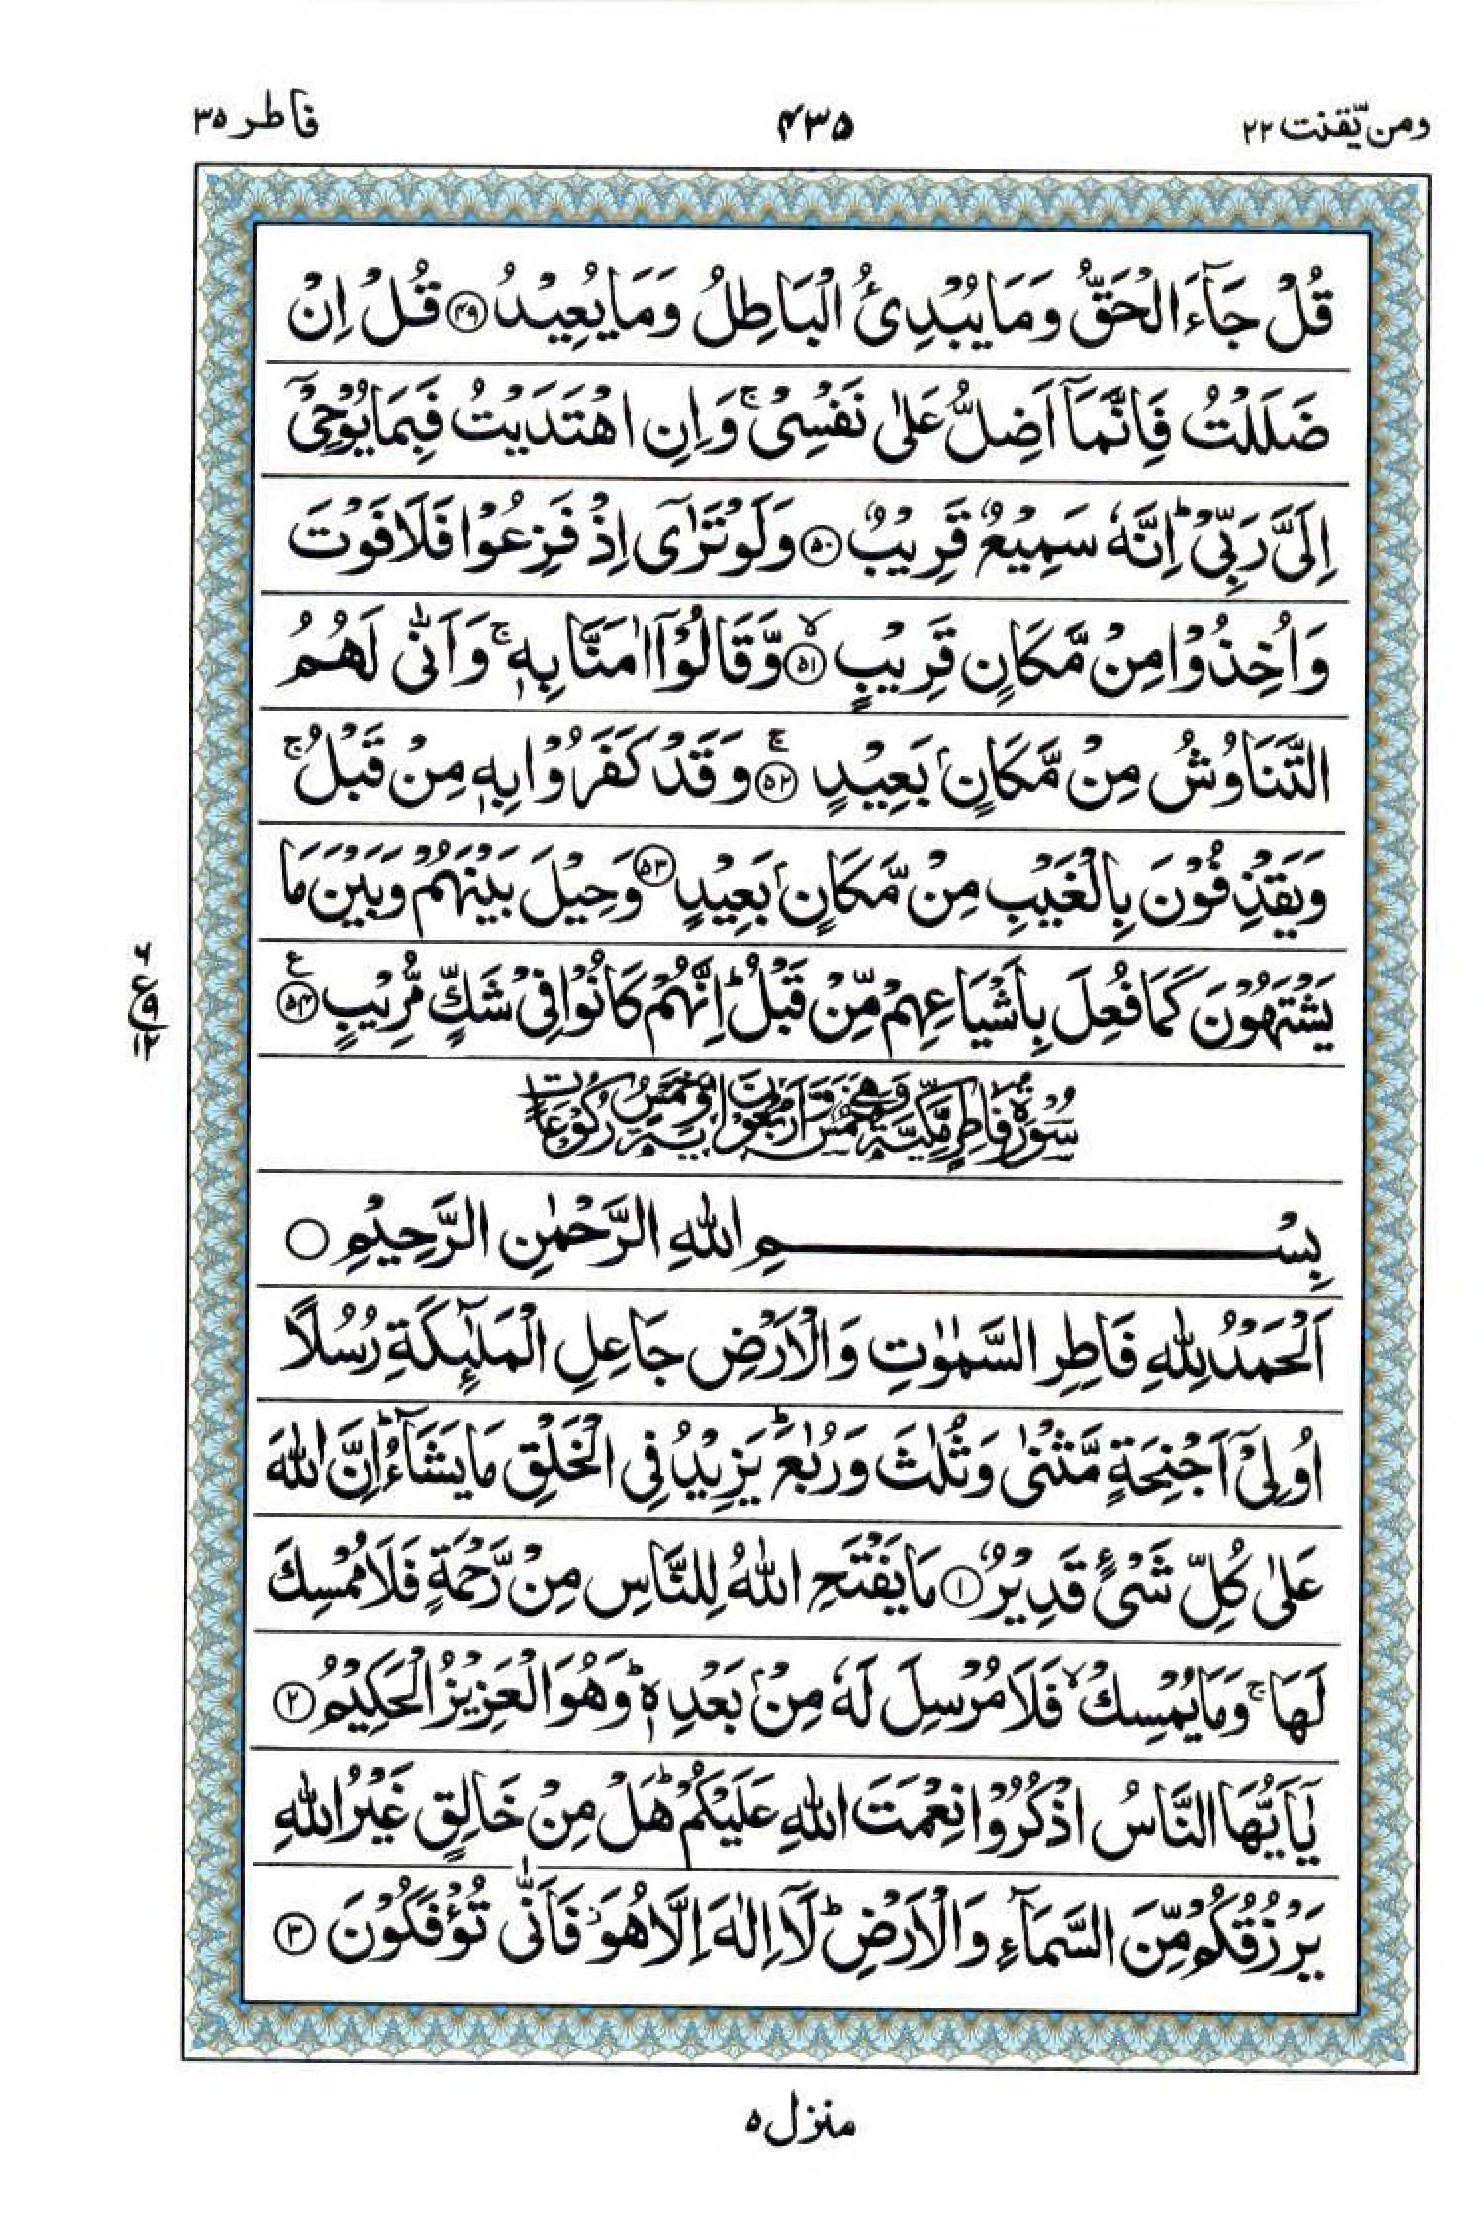 ومن یّقنت ۲۲
۴۳۵
فاطر ۳۵
قُلْ جَآءَ الْحَقُّ وَمَا یُبْدِئُ الْبَاطِلُ وَمَا یُعِیْدُ ﴿۴۹﴾ قُلْ اِنْ
ضَلَلْتُ فَاِنَّمَاۤ اَضِلُّ عَلٰی نَفْسِیْ ۚ وَاِنِ اهْتَدَیْتُ فَبِمَا یُوْحِیْۤ
اِلَیَّ رَبِّیْ ؕ اِنَّهٗ سَمِیْعٌ قَرِیْبٌ ﴿۵۰﴾ وَلَوْ تَرٰۤی اِذْ فَزِعُوْا فَلَا فَوْتَ
وَاُخِذُوْا مِنْ مَّكَانٍ قَرِیْبٍ ﴿۵۱﴾ۙ وَّقَالُوْۤا اٰمَنَّا بِهٖ ۚ وَاَنّٰی لَهُمُ
التَّنَاوُشُ مِنْ مَّكَانٍۭ بَعِیْدٍ ﴿۵۲﴾ۚ وَقَدْ كَفَرُوْا بِهٖ مِنْ قَبْلُ ۚ
وَیَقْذِفُوْنَ بِالْغَیْبِ مِنْ مَّكَانٍۭ بَعِیْدٍ ﴿۵۳﴾ وَحِیْلَ بَیْنَهُمْ وَبَیْنَ مَا
یَشْتَهُوْنَ كَمَا فُعِلَ بِاَشْیَاعِهِمْ مِّنْ قَبْلُ ؕ اِنَّهُمْ كَانُوْا فِیْ شَكٍّ مُّرِیْبٍ ﴿۵۴﴾ ع
۶
ع ۹
۱۲
سُوْرَةُ فَاطِرٍ مَّكِّیَّةٌ وَّهِیَ خَمْسٌ وَّاَرْبَعُوْنَ اٰیَةً وَّخَمْسُ رُكُوْعَاتٍ
بِسْمِ اللهِ الرَّحْمٰنِ الرَّحِیْمِ ○
اَلْحَمْدُ لِلّٰهِ فَاطِرِ السَّمٰوٰتِ وَالْاَرْضِ جَاعِلِ الْمَلٰٓئِكَةِ رُسُلًا
اُولِیْۤ اَجْنِحَةٍ مَّثْنٰی وَثُلٰثَ وَرُبٰعَ ؕ یَزِیْدُ فِی الْخَلْقِ مَا یَشَآءُ ؕ اِنَّ اللهَ
عَلٰی كُلِّ شَیْءٍ قَدِیْرٌ ﴿۱﴾ مَا یَفْتَحِ اللهُ لِلنَّاسِ مِنْ رَّحْمَةٍ فَلَا مُمْسِكَ
لَهَا ۚ وَمَا یُمْسِكْ ۙ فَلَا مُرْسِلَ لَهٗ مِنْۢ بَعْدِهٖ ؕ وَهُوَ الْعَزِیْزُ الْحَكِیْمُ ﴿۲﴾
یٰۤاَیُّهَا النَّاسُ اذْكُرُوْا نِعْمَتَ اللهِ عَلَیْكُمْ ؕ هَلْ مِنْ خَالِقٍ غَیْرُ اللهِ
یَرْزُقُكُمْ مِّنَ السَّمَآءِ وَالْاَرْضِ ؕ لَاۤ اِلٰهَ اِلَّا هُوَ ۖ فَاَنّٰی تُؤْفَكُوْنَ ﴿۳﴾
منزل ۵